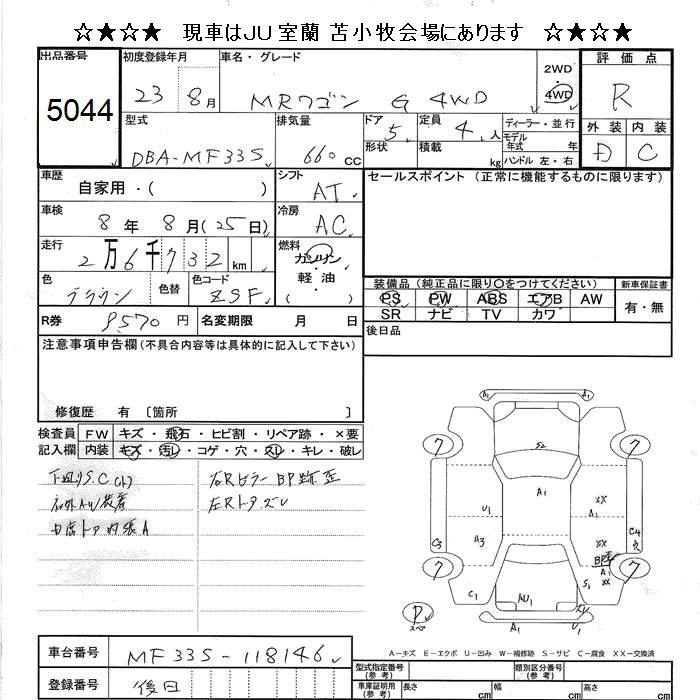 ☆★☆★ 現車はJU室蘭 苫小牧会場にあります ☆★☆★
出品番号
5044
初度登録年月
23 8月
車名・グレード
MRワゴン G 4WD
2WD
4WD
評価点
R
外装 内装
D C
型式
DBA-MF33S
排気量
660cc
ドア
5
形状
定員
4人
積載
kg
ディーラー・並行
モデル年式 年
ハンドル 左・右
車歴
自家用・( )
シフト
AT
セールスポイント (正常に機能するものに限ります)
車検
8年 8月(25日)
冷房
AC
走行
2万6千732km
燃料
ガソリン
軽油
( )
色
ブラウン
色替
色コード
ZSF
装備品(純正品に限り〇をつけてください)
PS PW ABS エアB AW
SR ナビ TV カワ
新車保証書
有・無
R券 9570円
名変期限 月 日
後日品
注意事項申告欄(不具合内容等は具体的に記入して下さい)
修復歴 有 〔箇所 〕
検査員記入欄
FW キズ・飛石・ヒビ割・リペア跡・×要
内装 キズ・汚レ・コゲ・穴・スレ・キレ・破レ
下廻りS.C(小)
社外AW装着
右RピラーBP跡歪
左Rトアズレ
A1 A1
S2
A1
U1
A3
XX
A1
XX
BP歪
A1
S1
C3
C4
穴
C1
AU1
ズレ
U1
7 7
7 7
P
スペア
A-キズ E-エクボ U-凹み W-補修跡 S-サビ C-腐食 XX-交換済
車台番号
MF33S-118146
登録番号
後日
型式指定番号
(参考)
類別区分番号
(参考)
車庫証明用
(参考)
長さ cm
幅 cm
高さ cm